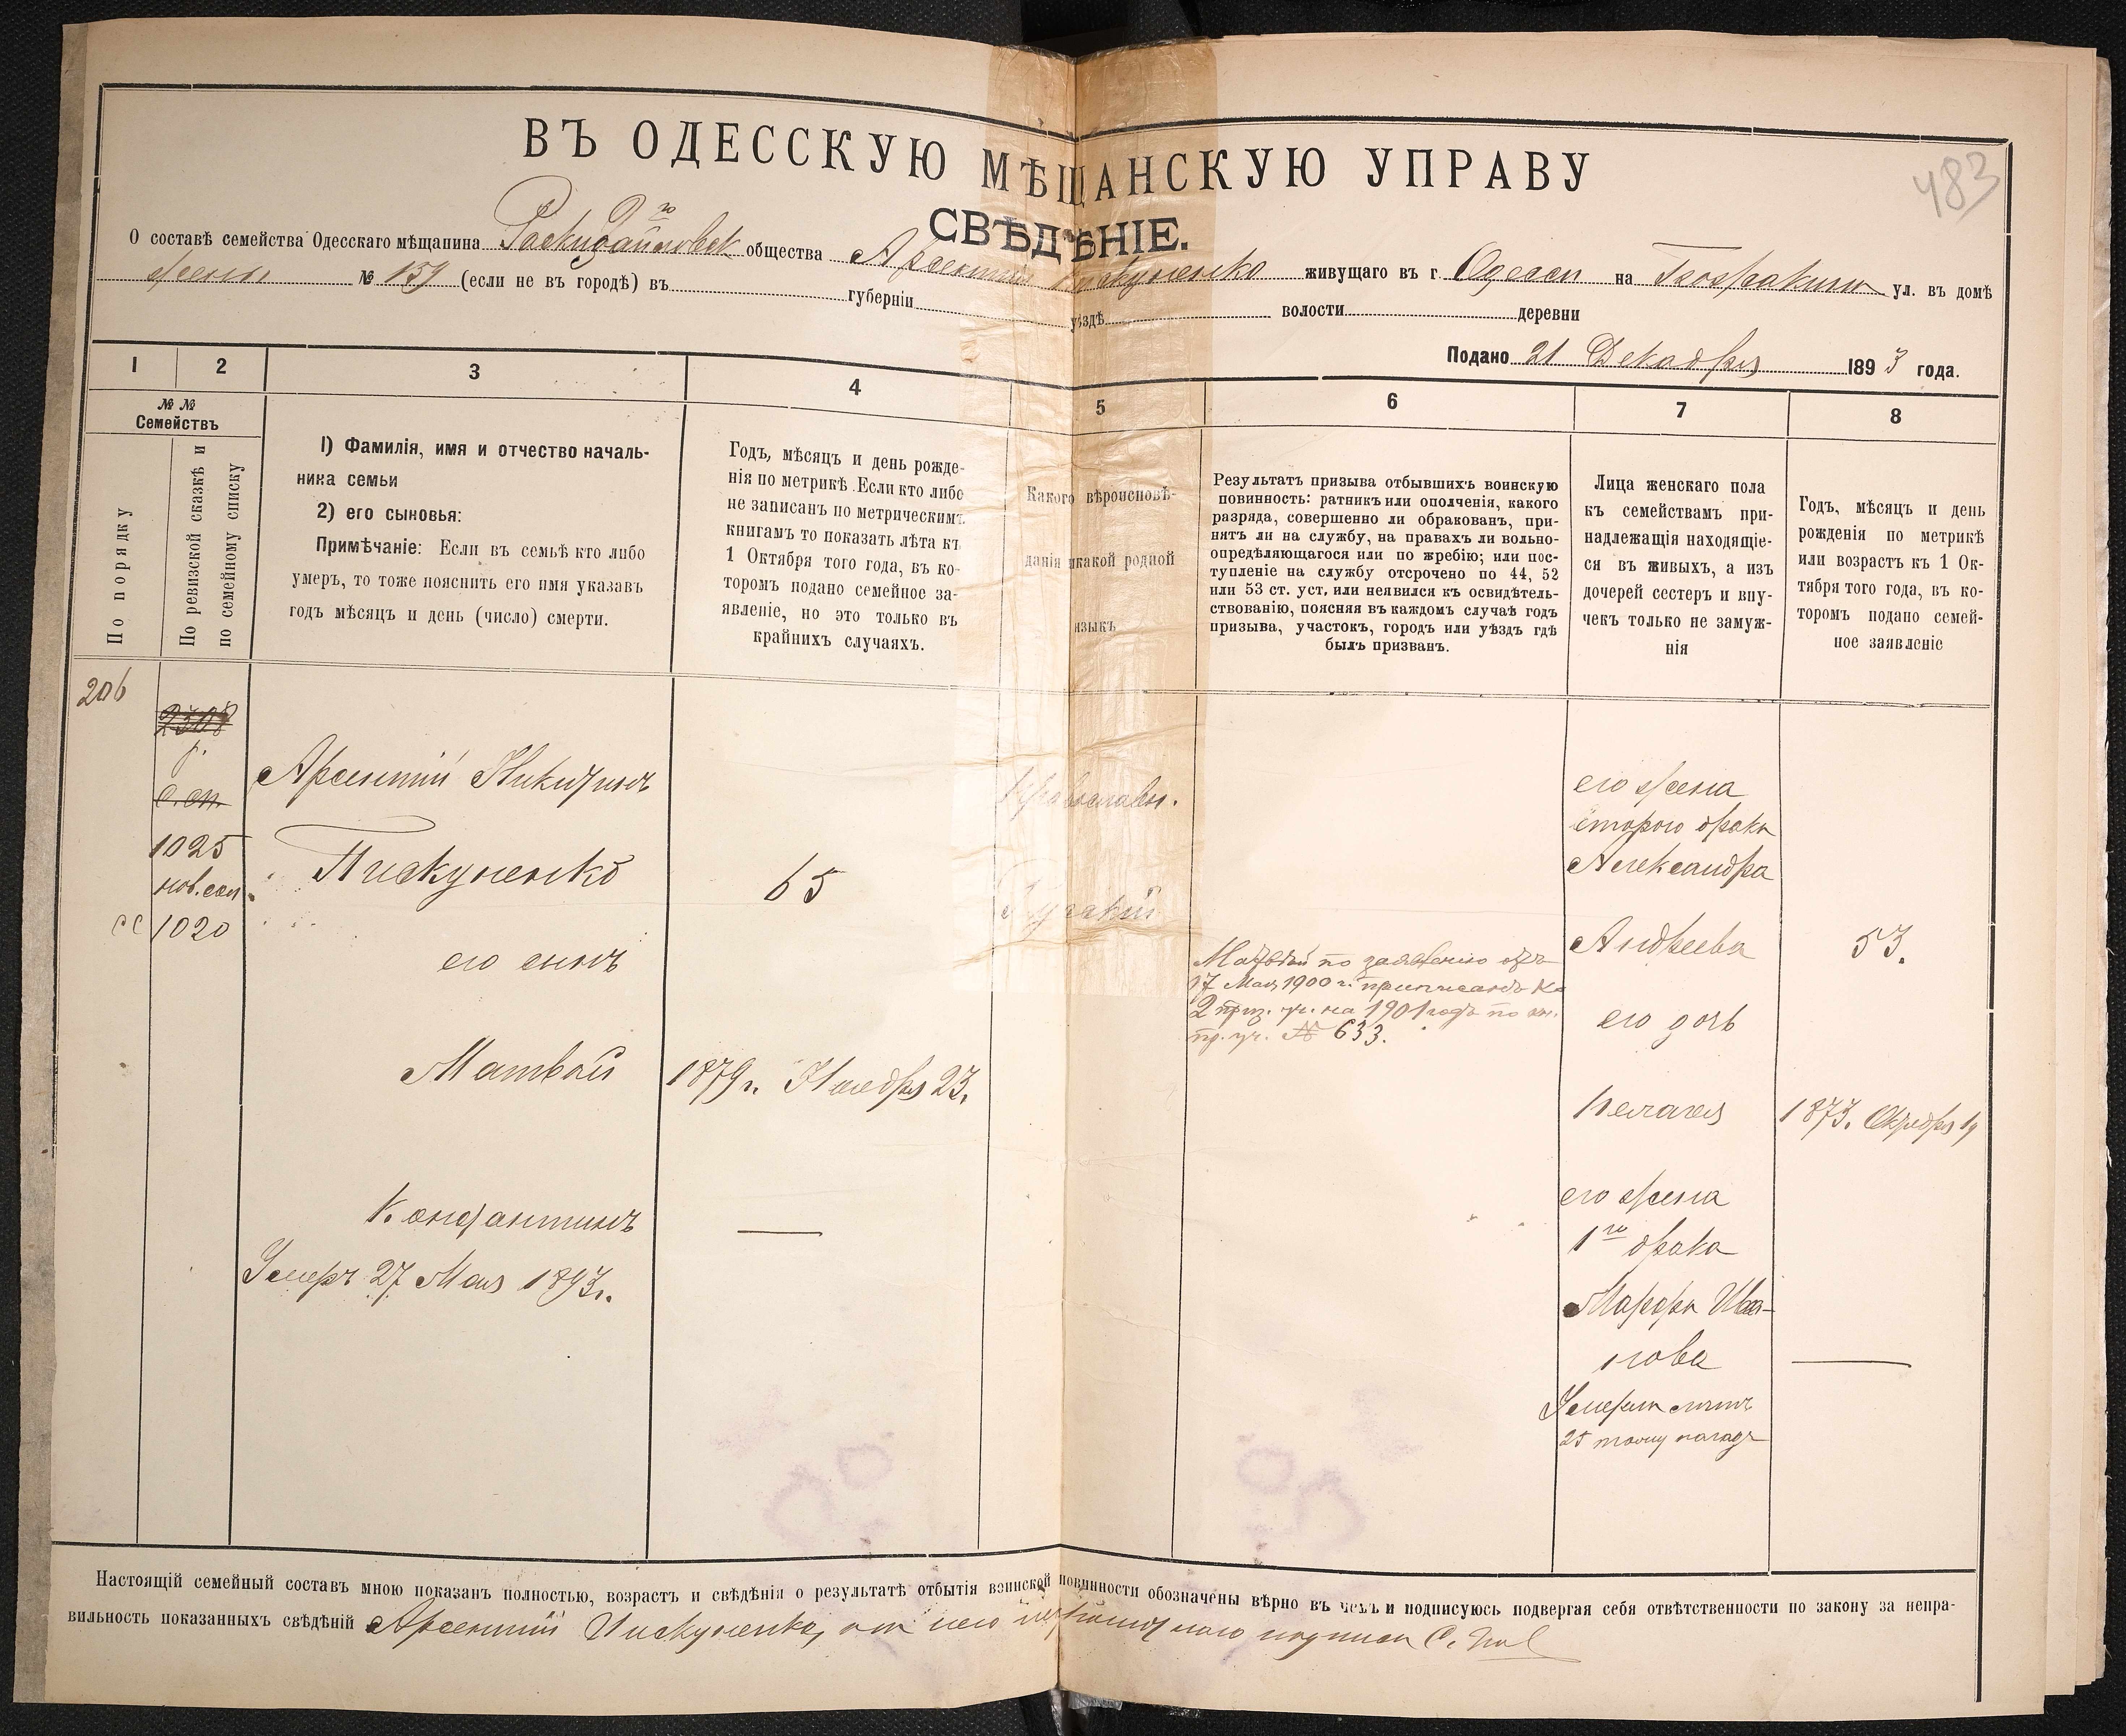 483
ВЪ ОДЕССКУЮ МѢЩАНСКУЮ УПРАВУ
СВѢДѢНІЕ.
О составѣ семейства Одесскаго мѣщанина общества Арсентій Пискуненко живущаго въ г. Одессы на ул. въ домѣ
№ 159 (если не въ городѣ) въ губерніи уѣздѣ волости деревни
Подано 21 Декабря 1893 года.
1 2 3 4 5 6 7 8
№ № Семействъ
По порядку
По ревизской сказкѣ и
по семейному списку
1) Фамилія, имя и отчество началь-
ника семьи
2) его сыновья:
Примѣчаніе: Если въ семьѣ кто либо
умеръ, то тоже пояснить его имя указавъ
годъ мѣсяцъ и день (число) смерти.
Годъ, мѣсяцъ и день рожде-
нія по метрикѣ. Если кто либо
не записанъ по метрическимъ
книгамъ то показать лѣта къ
1 Октября того года, въ ко-
торомъ подано семейное за-
явленіе, но это только въ
крайнихъ случаяхъ.
Какого вѣроисповѣ-
данія и какой родной
языкъ
Результатъ призыва отбывшихъ воинскую
повинность: ратникъ или ополченія, какого
разряда, совершенно ли обракованъ, при-
нятъ ли на службу, на правахъ ли вольно-
опредѣляющагося или по жребію; или пос-
тупленіе на службу отсрочено по 44, 52
или 53 ст. уст. или неявился къ освидѣтель-
ствованію, поясняя въ каждомъ случаѣ годъ
призыва, участокъ, городъ или уѣздъ гдѣ
былъ призванъ.
Лица женскаго пола
къ семействамъ при-
надлежащія находящіе-
ся въ живыхъ, а изъ
дочерей сестеръ и вну-
чекъ только не замуж-
нія
Годъ, мѣсяцъ и день
рожденія по метрикѣ
или возрастъ къ 1 Ок-
тября того года, въ ко-
торомъ подано семей-
ное заявленіе
206
с. сп.
1025
1020
Арсентій Никитинъ
Пискуненко
65
его сынъ
Матвѣй
1879 г. Ноября 23.
Константинъ
Умеръ 27 Мая 1893 г.
Православн.
Русскій
Матвѣй по заявленію отъ
17 Мая 1900 г. приписанъ ко
2 приз. уч. на 1901 годъ по
пр. уч. № 633.
его жена
второго брака
Александра
Андреева
53.
его дочь
Пелагея
1873. Октября 19
его жена
1го брака
Марфа Ива-
нова
Умерла лѣтъ
25 тому назадъ
Настоящій семейный составъ мною показанъ полностью, возрастъ и свѣдѣнія о результатѣ отбытія воинской повинности обозначены вѣрно въ чемъ и подписуюсь подвергая себя отвѣтственности по закону за непра-
вильность показанныхъ свѣдѣній Арсентій Пискуненко, а за него неграмотнаго